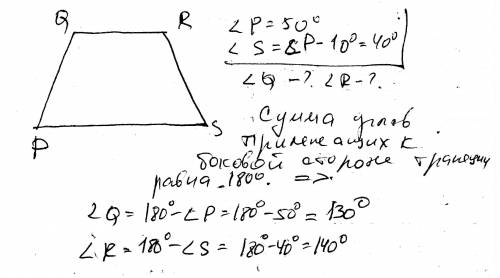 Q R
P S
∠P=50°
∠S=∠P-10°=40°
∠Q-? ∠R-?
Сумма углов
прилежащих к
боковой стороне трапеции
равна 180° =>
∠Q=180°-∠P=180°-50°=130°
∠R=180°-∠S=180°-40°=140°